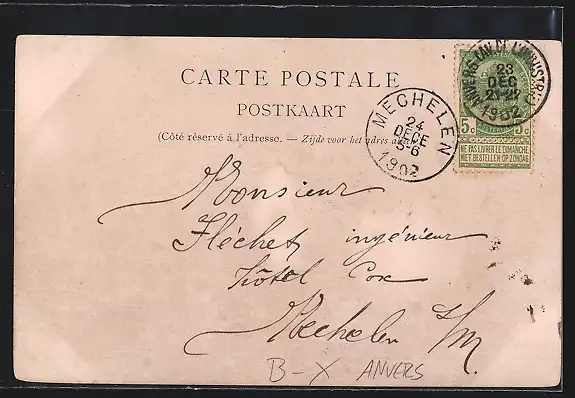 CARTE POSTALE
POSTKAART
(Côté réservé à l'adresse. — Zijde voor het adres
MECHELEN
24
DECE
5-6
1902
ANVERS
23
DEC
1902
5c 5c
NE PAS LIVRER LE DIMANCHE
NIET BESTELLEN OP ZONDAG
Monsieur
Fléchet, ingénieur
hôtel Cox
Mechelen s/m
B-X ANVERS